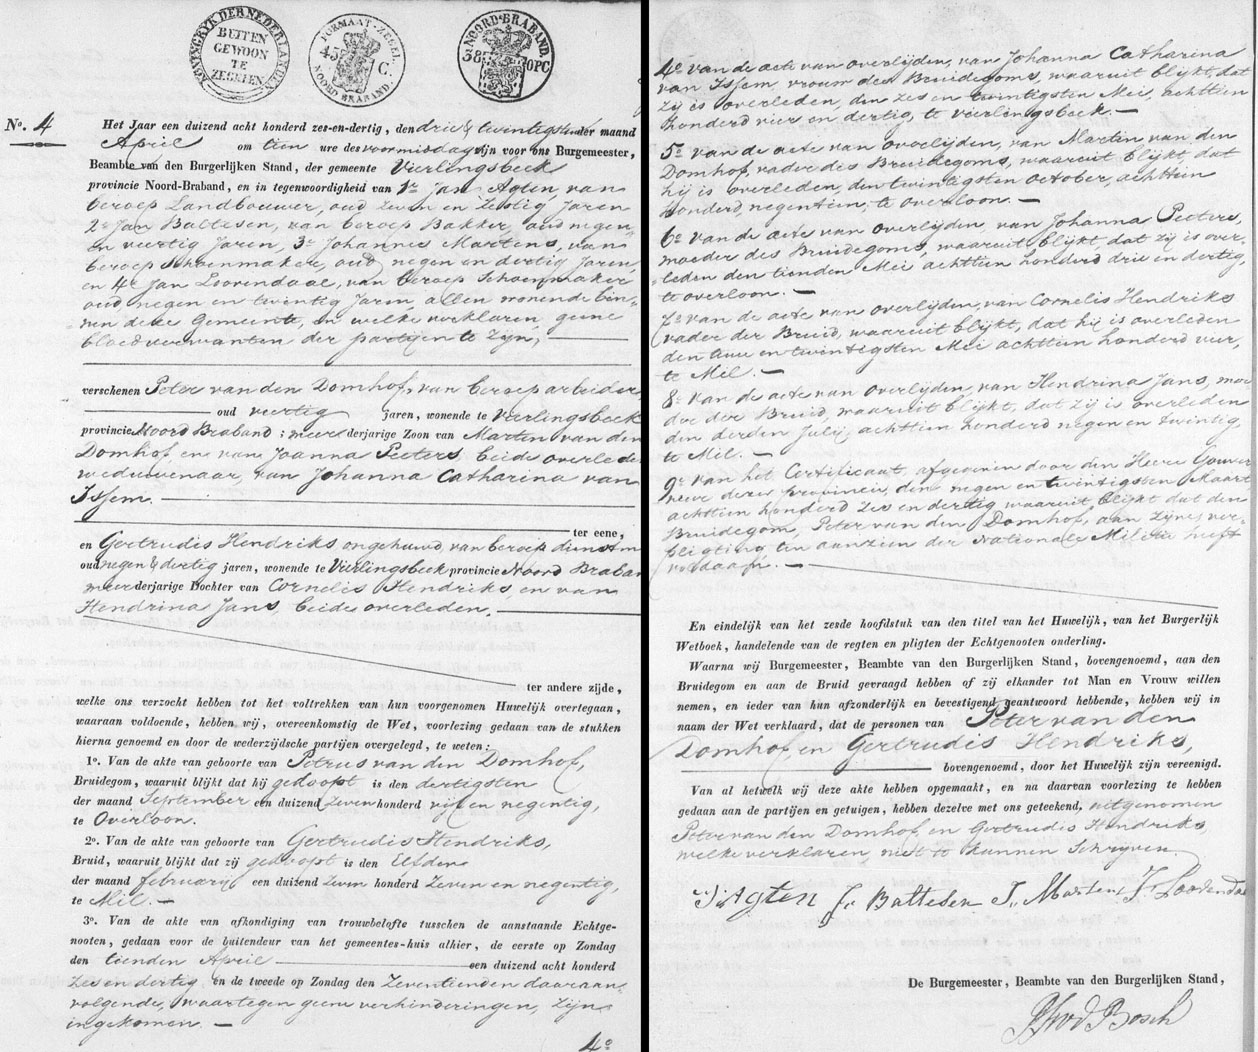 KONINGRYK DER NEDERLANDEN
BUITEN
GEWOON
TE
ZEGELEN.
FORMAAT-ZEGEL.
45 C.
NOORD BRABAND.
NOORD-BRABAND.
38 OPC
No. 4
Het Jaar een duizend acht honderd zes-en-dertig, den drie & twintigsten der maand
April om tien ure des voormiddag zijn voor ons Burgemeester,
Beambte van den Burgerlijken Stand, der gemeente Vierlingsbeek
provincie Noord-Braband, en in tegenwoordigheid van 1e Jan Agten, van
beroep Landbouwer, oud zeven en zestig Jaren
2e Jan Baltesen, van beroep Bakker, oud negen
en veertig Jaren, 3e Johannes Martens, van
beroep Schoenmaker, oud negen en dertig Jaren,
en 4e Jan Loorendaal, van beroep Schoenmaker
oud, negen en twintig Jaren, allen wonende bin-
nen deze Gemeente, en welke verklaren, geene
bloedverwanten der partijen te zijn,
verschenen Peter van den Domhof, van beroep arbeider
oud veertig jaren, wonende te Vierlingsbeek
provincie Noord Braband; meerderjarige Zoon van Marten van den
Domhof en van Joanna Peeters, beide overleden
weduwenaar, van Johanna Catharina van
Issem.
ter eene,
en Gertrudis Hendriks ongehuwd, van beroep dienstm
oud negen & dertig jaren, wonende te Vierlingsbeek provincie Noord Braban
meerderjarige Dochter van Cornelis Hendriks, en van
Hendrina Jans, beide overleden,
ter andere zijde,
welke ons verzocht hebben tot het voltrekken van hun voorgenomen Huwelijk overtegaan,
waaraan voldoende, hebben wij, overeenkomstig de Wet, voorlezing gedaan van de stukken
hierna genoemd en door de wederzijdsche partijen overgelegd, te weten:
1o. Van de akte van geboorte van Petrus van den Domhof,
Bruidegom, waaruit blijkt dat hij gedoopt is den dertigsten
der maand September een duizend zeven honderd vijf en negentig,
te Overloon.
2o. Van de akte van geboorte van Gertrudis Hendriks,
Bruid, waaruit blijkt dat zij gedoopt is den Elfden
der maand februarij een duizend zeven honderd zeven en negentig,
te Mil. —
3o. Van de akte van afkondiging van trouwbelofte tusschen de aanstaande Echtge-
nooten, gedaan voor de buitendeur van het gemeentes-huis alhier, de eerste op Zondag
den tienden April een duizend acht honderd
zes en dertig en de tweede op Zondag den Zeventienden daaraan
volgende, waartegen geene verhinderingen, zijn
ingekomen. —
4o
4e van de acte van overlijden, van Johanna Catharina
van Issem, vrouw des Bruidegoms, waaruit blijkt, dat
zij is overleden, den zes en twintigsten Mei, achttien
honderd vier en dertig, te vierlingsbeek. —
5e van de acte van overlijden, van Marten van den
Domhof, vader des Bruidegoms, waaruit blijkt, dat
hij is overleden, den twintigsten october, achttien
honderd, negentien, te overloon. —
6e van de acte van overlijden, van Johanna Peeters,
moeder des Bruidegoms, waaruit blijkt, dat zij is over-
leden den tienden Mei achttien honderd drie en dertig,
te overloon. —
7e van de acte van overlijden, van Cornelis Hendriks
vader der Bruid, waaruit blijkt, dat hij is overleden
den twee en twintigsten Mei achttien honderd vier,
te Mil. —
8e van de acte van overlijden van Hendrina Jans, moe
der der Bruid, waaruit blijkt, dat zij is overleden
den derden Julij, achttien honderd negen en twintig,
te Mil. —
9e van het Certificaat, afgegeven door den Heere Gouver
neur dezer provincie, den negen en twintigsten Maart
achttien honderd zes en dertig waaruit blijkt dat den
Bruidegom, Peter van den Domhof, aan zijne ver-
pligting ten aanzien der Nationale Militie heeft
voldaan. —
En eindelijk van het zesde hoofdstuk van den titel van het Huwelijk, van het Burgerlijk
Wetboek, handelende van de regten en pligten der Echtgenooten onderling.
Waarna wij Burgemeester, Beambte van den Burgerlijken Stand, bovengenoemd, aan den
Bruidegom en aan de Bruid gevraagd hebben of zij elkander tot Man en Vrouw willen
nemen, en ieder van hun afzonderlijk en bevestigend geantwoord hebbende, hebben wij in
naam der Wet verklaard, dat de personen van Peter van den
Domhof, en Gertrudis Hendriks,
bovengenoemd, door het Huwelijk zijn vereenigd.
Van al hetwelk wij deze akte hebben opgemaakt, en na daarvan voorlezing te hebben
gedaan aan de partijen en getuigen, hebben dezelve met ons geteekend, uitgenomen
Peter van den Domhof en Gertrudis Hendriks,
welke verklaren niet te kunnen Schrijven.
J Agten J. Baltesen J. Martens J. Loorendaa
De Burgemeester, Beambte van den Burgerlijken Stand,
Bosch